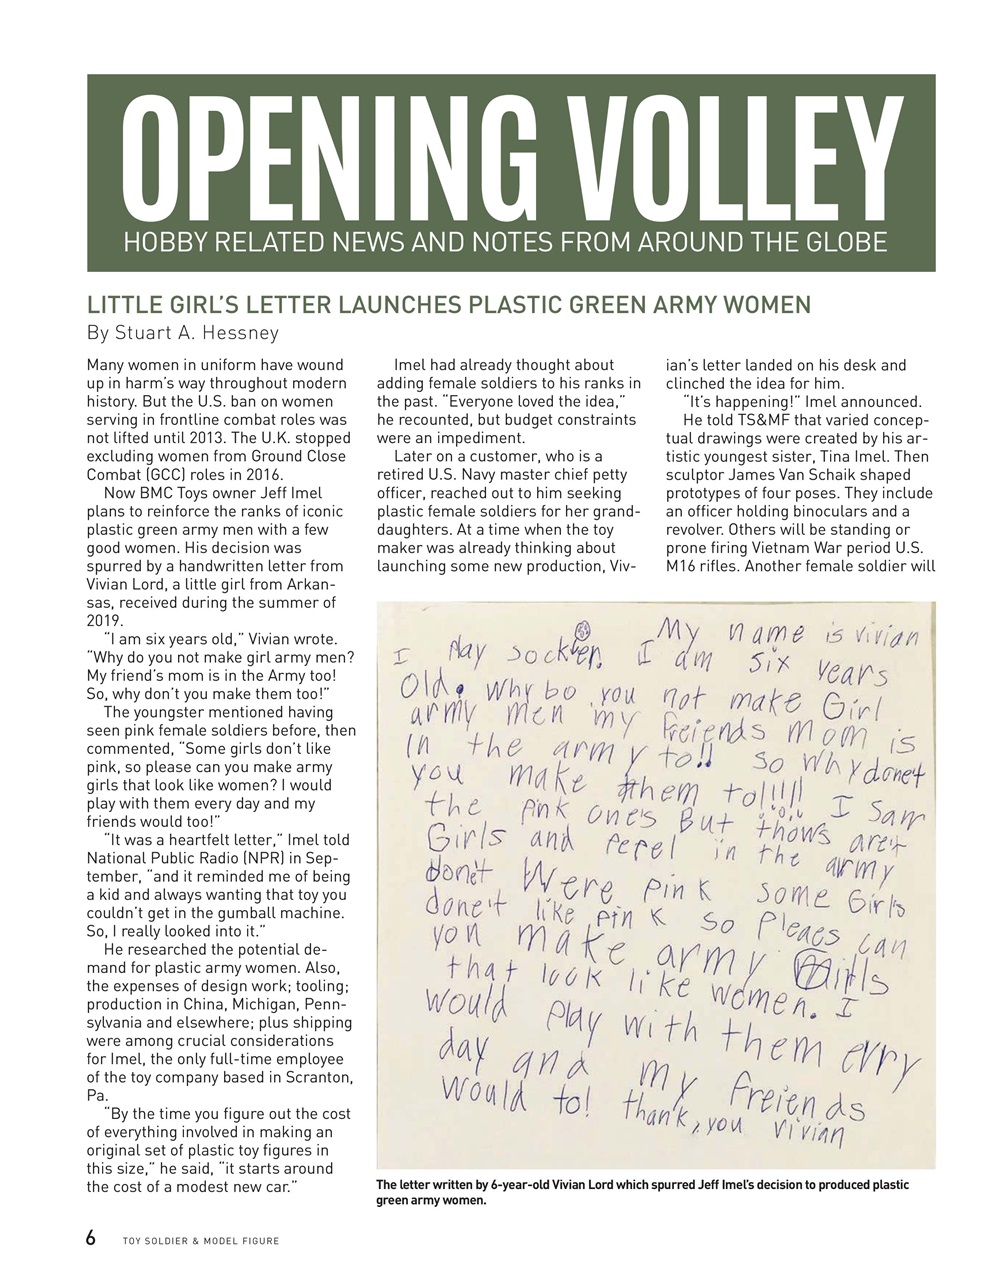 OPENING VOLLEY
HOBBY RELATED NEWS AND NOTES FROM AROUND THE GLOBE
LITTLE GIRL'S LETTER LAUNCHES PLASTIC GREEN ARMY WOMEN
By Stuart A. Hessney
Many women in uniform have wound
up in harm's way throughout modern
history. But the U.S. ban on women
serving in frontline combat roles was
not lifted until 2013. The U.K. stopped
excluding women from Ground Close
Combat (GCC) roles in 2016.
Now BMC Toys owner Jeff Imel
plans to reinforce the ranks of iconic
plastic green army men with a few
good women. His decision was
spurred by a handwritten letter from
Vivian Lord, a little girl from Arkan-
sas, received during the summer of
2019.
“I am six years old,” Vivian wrote.
“Why do you not make girl army men?
My friend's mom is in the Army too!
So, why don't you make them too!”
The youngster mentioned having
seen pink female soldiers before, then
commented, “Some girls don't like
pink, so please can you make army
girls that look like women? I would
play with them every day and my
friends would too!”
“It was a heartfelt letter,” Imel told
National Public Radio (NPR) in Sep-
tember, “and it reminded me of being
a kid and always wanting that toy you
couldn't get in the gumball machine.
So, I really looked into it.”
He researched the potential de-
mand for plastic army women. Also,
the expenses of design work; tooling;
production in China, Michigan, Penn-
sylvania and elsewhere; plus shipping
were among crucial considerations
for Imel, the only full-time employee
of the toy company based in Scranton,
Pa.
“By the time you figure out the cost
of everything involved in making an
original set of plastic toy figures in
this size,” he said, “it starts around
the cost of a modest new car.”
Imel had already thought about
adding female soldiers to his ranks in
the past. “Everyone loved the idea,”
he recounted, but budget constraints
were an impediment.
Later on a customer, who is a
retired U.S. Navy master chief petty
officer, reached out to him seeking
plastic female soldiers for her grand-
daughters. At a time when the toy
maker was already thinking about
launching some new production, Viv-
ian's letter landed on his desk and
clinched the idea for him.
“It's happening!” Imel announced.
He told TS&MF that varied concep-
tual drawings were created by his ar-
tistic youngest sister, Tina Imel. Then
sculptor James Van Schaik shaped
prototypes of four poses. They include
an officer holding binoculars and a
revolver. Others will be standing or
prone firing Vietnam War period U.S.
M16 rifles. Another female soldier will
My name is vivian
I Play socker. I am six years
Old. Why bo you not make Girl
army men my freiends mom is
in the army to!! so why donet
you make them to!!!!! I saw
the pink ones But thows aret
Girls and pepel in the army
donet Were pink some Girls
donet like pink so pleaes can
you make army Girls
that look like women. I
would play with them evry
day and my freiends
would to! thank, you vivian
The letter written by 6-year-old Vivian Lord which spurred Jeff Imel's decision to produced plastic
green army women.
6 TOY SOLDIER & MODEL FIGURE